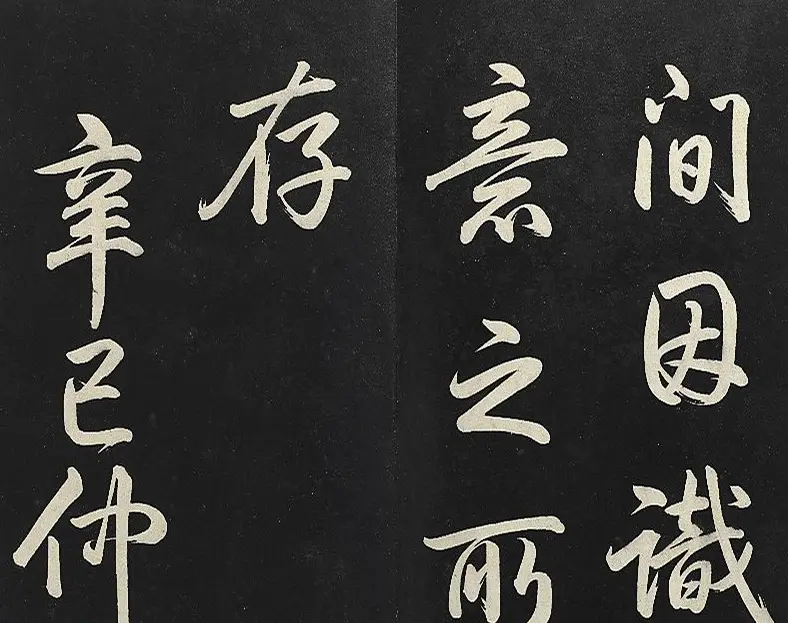 间因識
意之所
存
辛巳仲